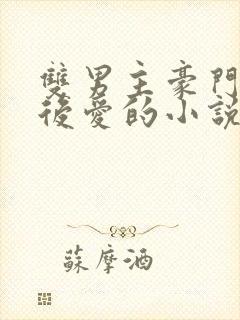 雙男主豪門
後愛的小說
蘇摩酒